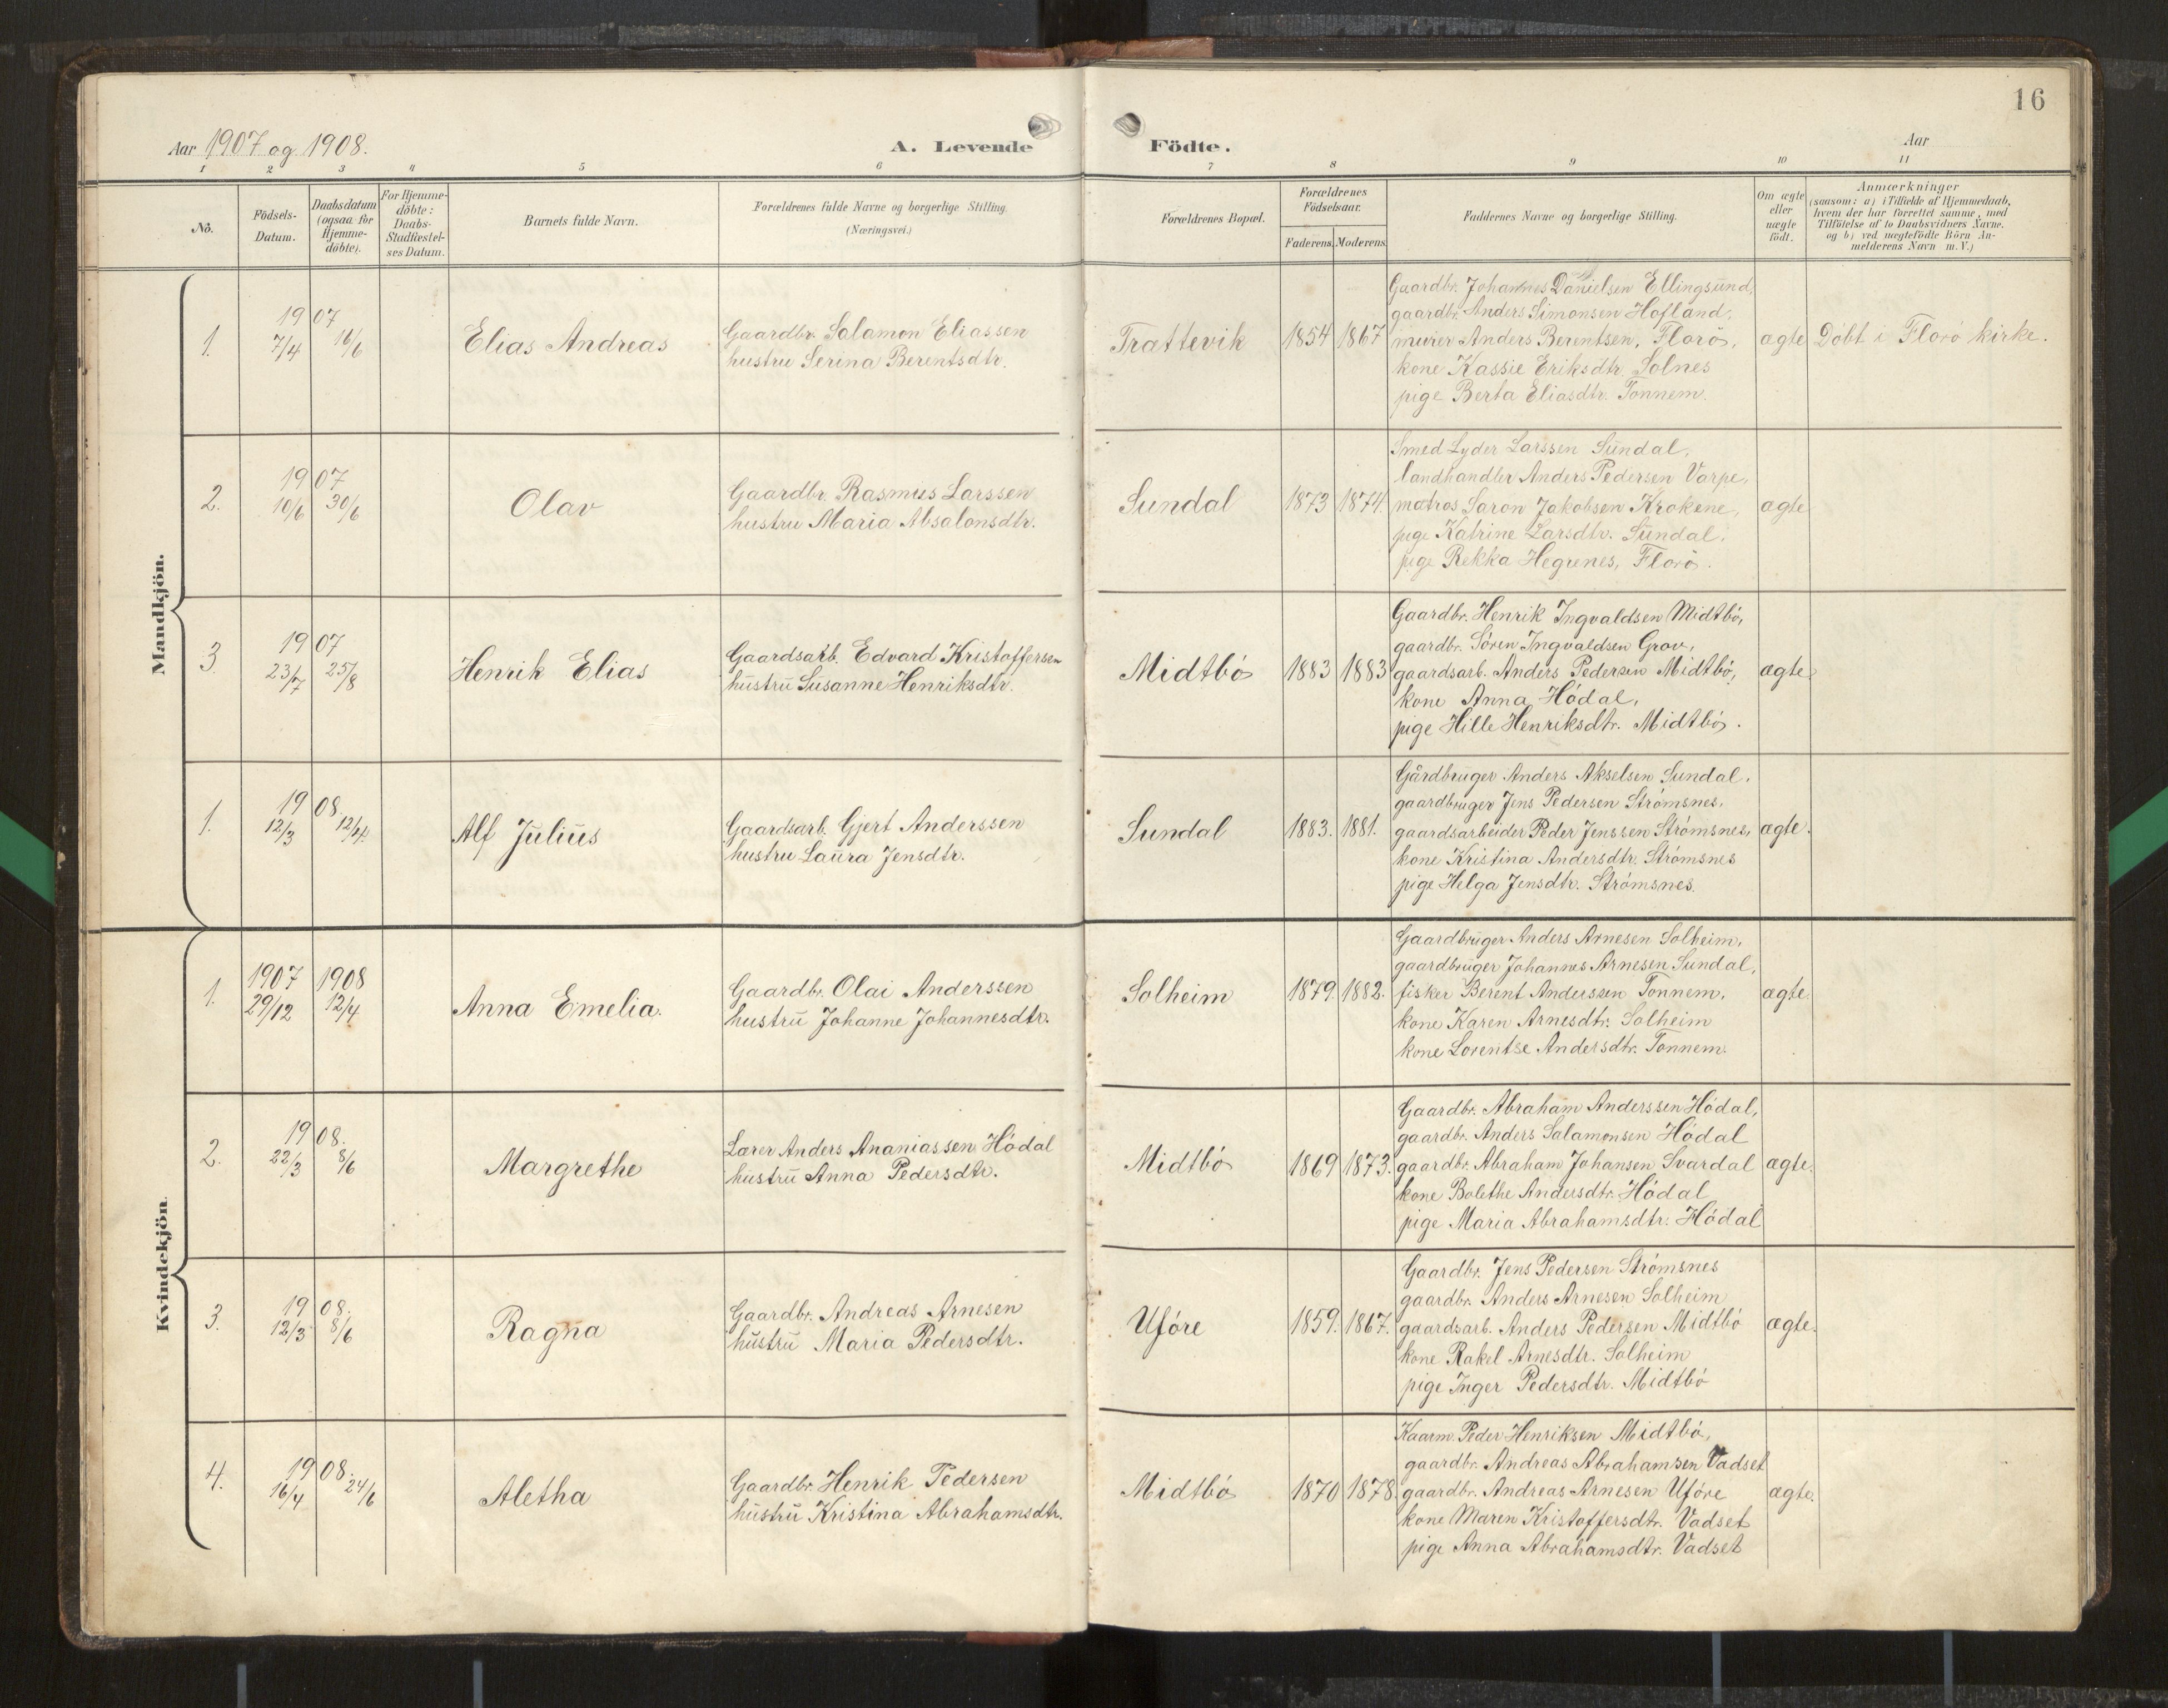 16
Aar 1907 og 1908.
A. Levende Födte.
Aar
1 2 3 4 5 6 7 8 9 10 11
No.
Födsels-Datum.
Daabsdatum (ogsaa for Hjemme-döbte).
For Hjemme-döbte: Daabs-Stadfæstel-ses Datum.
Barnets fulde Navn.
Forældrenes fulde Navne og borgerlige Stilling. (Næringsvei.)
Forældrenes Bopæl.
Forældrenes Födselsaar.
Faderens. Moderens.
Faddernes Navne og borgerlige Stilling.
Om ægte eller uægte födt.
Anmærkninger
(saasom: a) i Tilfælde af Hjemmedaab, hvem der har forrettet samme, med Tilföielse af to Daabsvidners Navne, og b) ved uægtefödte Börn An-melderens Navn m.V.)
Mandkjön.
1. 1907 7/4 16/6 Elias Andreas
Gaardbr. Salamon Eliassen
hustru Serina Berentsdtr.
Trættevik 1854 1867
Gaardbr. Johannes Danielsen Ellingsund,
gaardbr. Anders Simonsen Hofland,
murer Anders Berentsen, Florö,
kone Kassie Eriksdtr. Solnes
pige Berta Eliasdtr. Tonnem.
ægte Döbt i Florö kirke.
2. 1907 10/6 30/6 Olav
Gaardbr. Rasmus Larssen
hustru Maria Absalonsdtr.
Sundal 1873 1874.
Smed Lyder Larssen Sundal,
landhandler Anders Pedersen Varpe,
matros Saron Jakobsen Krokene,
pige Katrine Larsdtr. Sundal,
pige Rekka Hegrenes, Florö.
ægte
3. 1907 23/7 25/8 Henrik Elias
Gaardsarb. Edvard Kristoffersen
hustru Susanne Henriksdtr.
Midtbö 1883 1883
Gaardbr. Henrik Ingvaldsen Midtbö,
gaardbr. Sören Ingvaldsen Grov,
gaardsarb. Anders Pedersen Midtbö,
kone Anna Hödal,
pige Hille Henriksdtr. Midtbö.
ægte
1. 1908 12/3 12/4. Alf Julius
Gaardsarb. Gjert Anderssen
hustru Laura Jensdtr.
Sundal 1883. 1881.
Gårdbruger Anders Akselsen Sundal,
gaardbruger Jens Pedersen Strömsnes,
gaardsarbeider Peder Jenssen Strömsnes,
kone Kristina Andersdtr. Strömsnes
pige Helga Jensdtr. Strömsnes.
ægte.
Kvindekjön.
1. 1907 29/12 1908 12/4 Anna Emelia.
Gaardbr. Olai Anderssen
hustru Johanne Johannesdtr.
Solheim 1879. 1882.
Gaardbruger Anders Arnesen Solheim,
gaardbruger Johannes Arnesen Sundal,
fisker Berent Anderssen Tonnem,
kone Karen Arnesdtr. Solheim
kone Lorentse Andersdtr. Tonnem.
ægte.
2. 1908. 22/3 8/6 Margrethe
Lærer Anders Ananiassen Hödal
hustru Anna Pedersdtr.
Midtbö 1869 1873.
Gaardbr. Abraham Anderssen Hödal,
gaardbr. Anders Salamonsen Hödal
gaardbr. Abraham Johansen Svardal
kone Bolethe Andersdtr. Hödal
pige Maria Abrahamsdtr. Hödal
ægte.
3. 1908. 12/3 8/6 Ragna
Gaardbr. Andreas Arnesen
hustru Maria Pedersdtr.
Uföre 1859. 1867.
Gaardbr. Jens Pedersen Strömsnes
gaardbr. Anders Arnesen Solheim
gaardsarb. Anders Pedersen Midtbö
kone Rakel Arnesdtr. Solheim
pige Inger Pedersdtr. Midtbö
ægte.
4. 1908. 16/4 24/6 Aletha
Gaardbr. Henrik Pedersen
hustru Kristina Abrahamsdtr.
Midtbö 1870 1878.
Kaarm. Peder Henriksen Midtbö,
gaardbr. Andreas Abrahamsen Vadset
gaardbr. Andreas Arnesen Uföre
kone Maren Kristoffersdtr. Vadset
pige Anna Abrahamsdtr. Vadset
ægte.